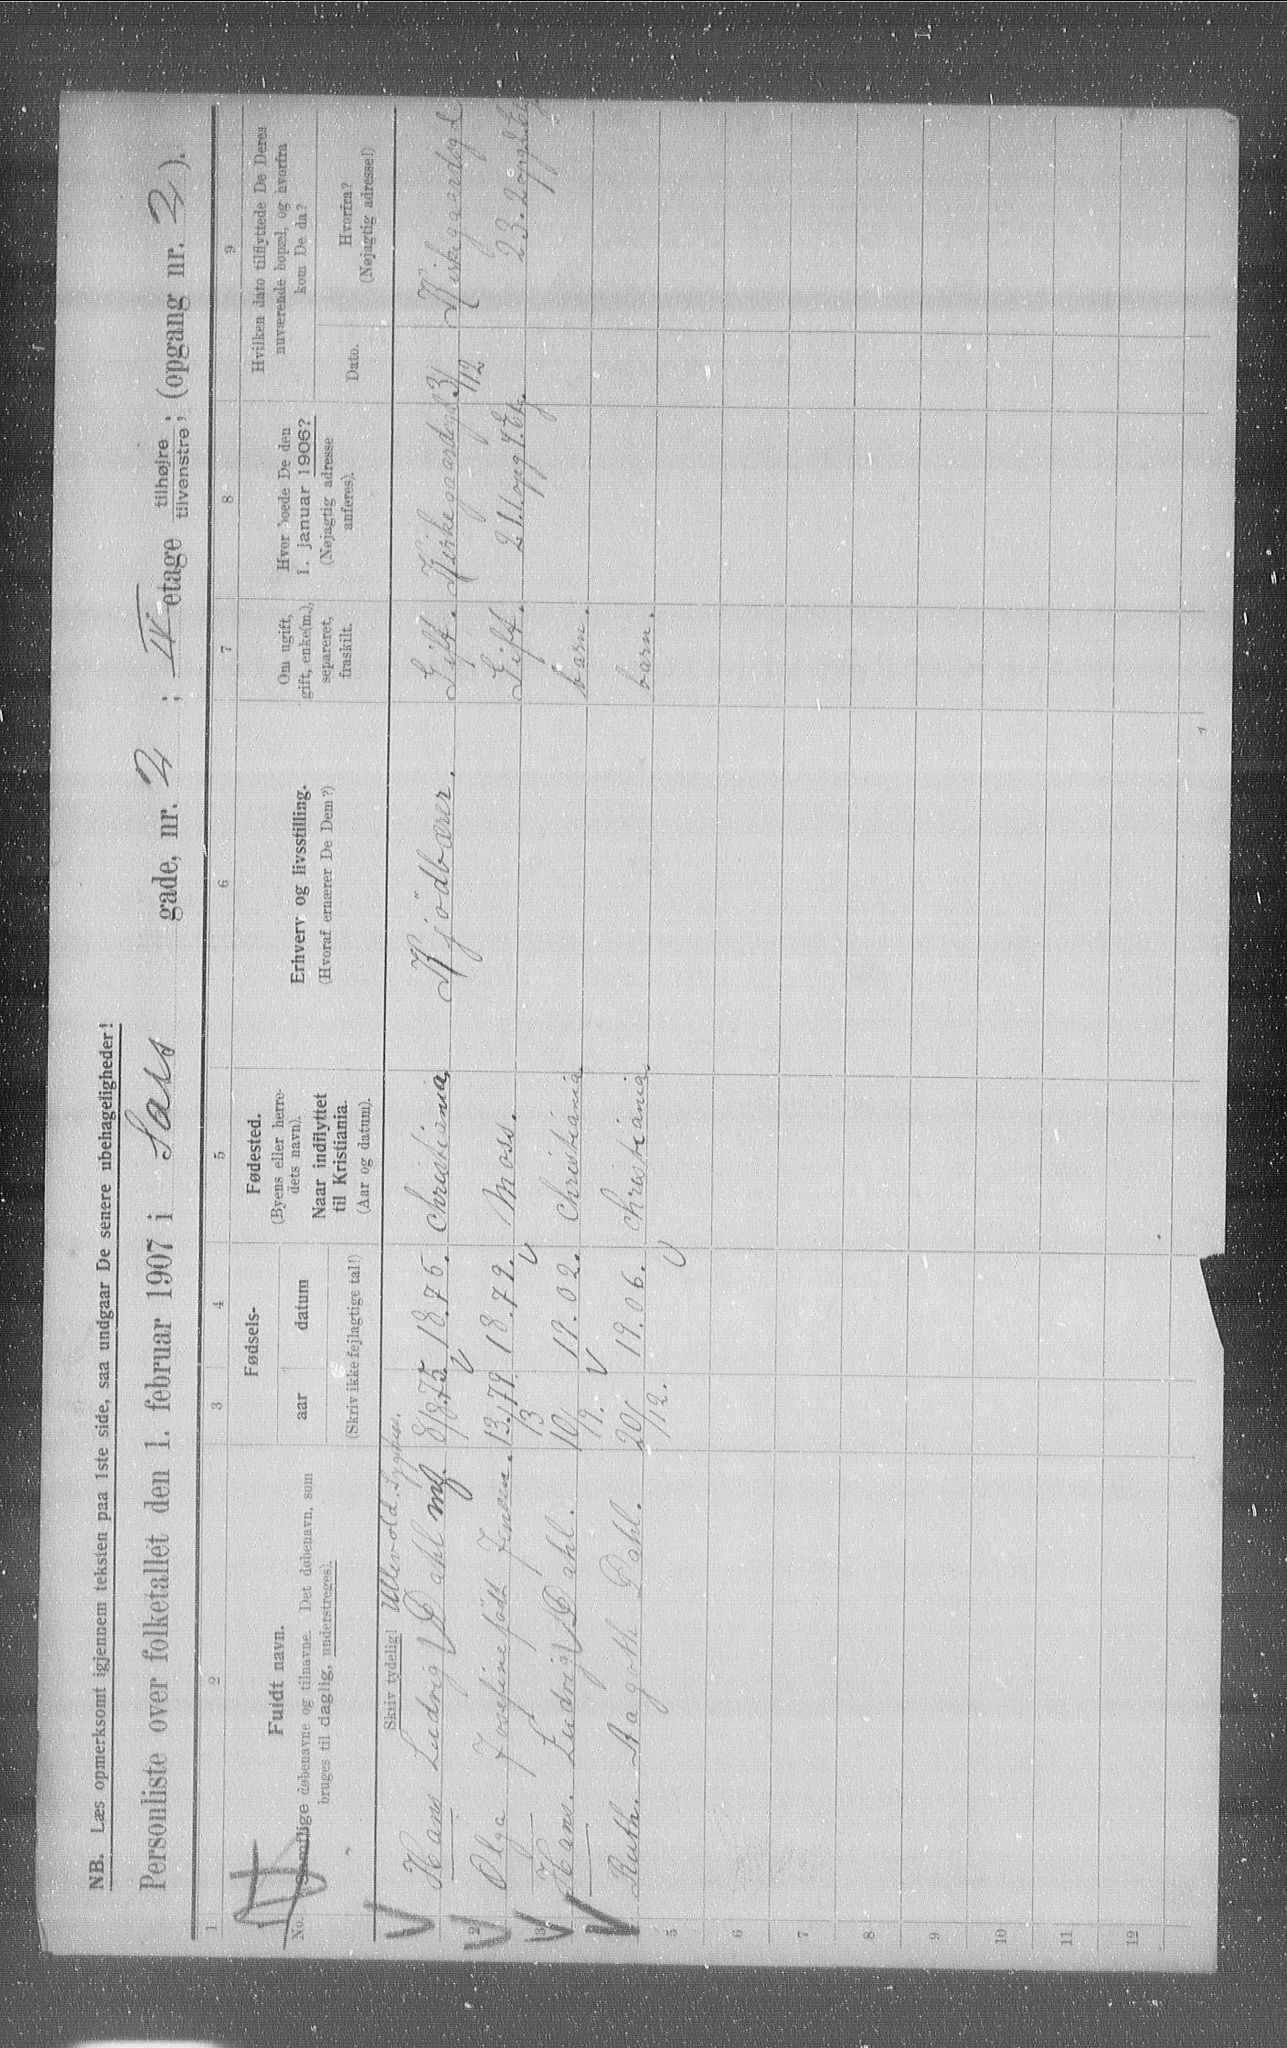 NB. Læs opmerksomt igjennem teksten paa 1ste side, saa undgaar De senere ubehageligheder!
Personliste over folketallet den 1. februar 1907 i Sars gade, nr. 2 ; IV etage tilhøjre tilvenstre ; (opgang nr. 2 ).
1 2 3 4 5 6 7 8 9
No.
Fuldt navn.
(Samtlige døbenavne og tilnavne. Det døbenavn, som
bruges til daglig, understreges).
Skriv tydelig!
Fødsels-
aar datum
(Skriv ikke fejlagtige tal!)
Fødested.
(Byens eller herre-
dets navn).
Naar indflyttet
til Kristiania.
(Aar og datum).
Erhverv og livsstilling.
(Hvoraf ernærer De Dem?)
Om ugift,
gift, enke(m.),
separeret,
fraskilt.
Hvor boede De den
1. januar 1906?
(Nøjagtig adresse
anføres).
Hvilken dato tilflyttede De Deres
nuværende bopæl, og hvorfra
kom De da?
Dato.
Hvorfra?
(Nøjagtig adresse!)
Ullevold. Sygehus.
Hans Ludvig Dahl mf. 8/8.75. 18.75. Christiania Kjödbærer. Gift. Kirkegaardsgd. 3/12 Kirkegaardsgd
2 Olga Josefine född Jensen. 13./79. 18.79. Moss. Gift. 21. 1. opg 4. Etg. 23. 2 opg 2. Etg.
3 Hans. Ludvig Dahl. 10/9. 19.02. Christiania barn.
Ruth. Aagoth Dahl. 20/12. 19.06. Christiania barn.
5
6
7
8
9
10
11
12